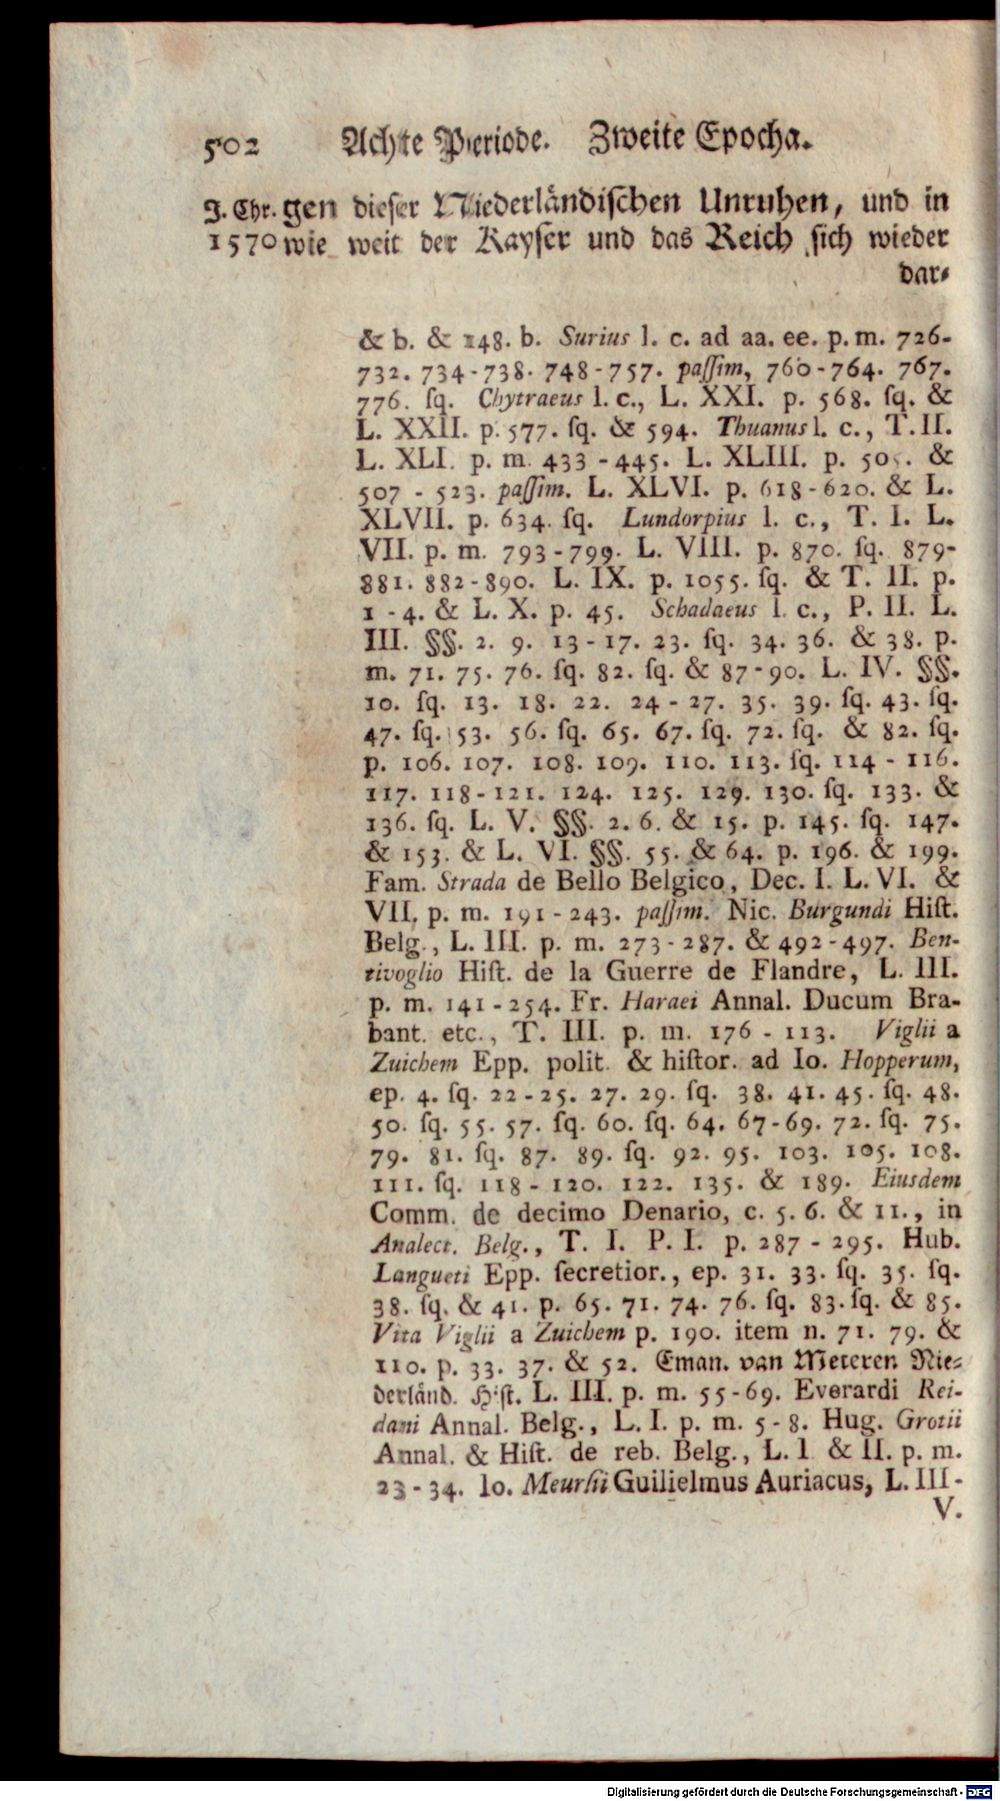 502 Achte Periode. Zweite Epocha.
J. Chr. gen dieser Niederländischen Unruhen, und in
1570 wie weit der Kayser und das Reich sich wieder
dar-
& b. & 148. b. Surius l. c. ad aa. ee. p. m. 726-
732. 734-738. 748-757. paſſim, 760-764. 767.
776. ſq. Chytraeus l. c., L. XXI. p. 568. ſq. &
L. XXII. p. 577. ſq. & 594. Thuanus l. c., T. II.
L. XLI. p. m. 433-445. L. XLIII. p. 505. &
507 - 523. paſſim. L. XLVI. p. 618-620. & L.
XLVII. p. 634. ſq. Lundorpius l. c., T. I. L.
VII. p. m. 793-799. L. VIII. p. 870. ſq. 879-
881. 882-890. L. IX. p. 1055. ſq. & T. II. p.
1 - 4. & L. X. p. 45. Schadaeus l. c., P. II. L.
III. §§. 2. 9. 13-17. 23. ſq. 34. 36. & 38. p.
m. 71. 75. 76. ſq. 82. ſq. & 87-90. L. IV. §§.
10. ſq. 13. 18. 22. 24 - 27. 35. 39. ſq. 43. ſq.
47. ſq. 53. 56. ſq. 65. 67. ſq. 72. ſq. & 82. ſq.
p. 106. 107. 108. 109. 110. 113. ſq. 114 - 116.
117. 118-121. 124. 125. 129. 130. ſq. 133. &
136. ſq. L. V. §§. 2. 6. & 15. p. 145. ſq. 147.
& 153. & L. VI. §§. 55. & 64. p. 196. & 199.
Fam. Strada de Bello Belgico, Dec. I. L. VI. &
VII. p. m. 191-243. paſſim. Nic. Burgundi Hiſt.
Belg., L. III. p. m. 273-287. & 492-497. Ben-
tivoglio Hiſt. de la Guerre de Flandre, L. III.
p. m. 141-254. Fr. Haraei Annal. Ducum Bra-
bant. etc., T. III. p. m. 176 - 113. Viglii a
Zuichem Epp. polit. & hiſtor. ad Io. Hopperum,
ep. 4. ſq. 22-25. 27. 29. ſq. 38. 41. 45. ſq. 48.
50. ſq. 55. 57. ſq. 60. ſq. 64. 67-69. 72. ſq. 75.
79. 81. ſq. 87. 89. ſq. 92. 95. 103. 105. 108.
111. ſq. 118 - 120. 122. 135. & 189. Eiusdem
Comm. de decimo Denario, c. 5. 6. & 11., in
Analect. Belg., T. I. P. I. p. 287 - 295. Hub.
Langueti Epp. ſecretior., ep. 31. 33. ſq. 35. ſq.
38. ſq. & 41. p. 65. 71. 74. 76. ſq. 83. ſq. & 85.
Vita Viglii a Zuichem p. 190. item n. 71. 79. &
110. p. 33. 37. & 52. Eman. van Meteren Nie-
derländ. Hiſt. L. III. p. m. 55-69. Everardi Rei-
dani Annal. Belg., L. I. p. m. 5-8. Hug. Grotii
Annal. & Hiſt. de reb. Belg., L. I & II. p. m.
23-34. Io. Meurſii Guilielmus Auriacus, L. III-
V.
Digitalisierung gefördert durch die Deutsche Forschungsgemeinschaft - DFG